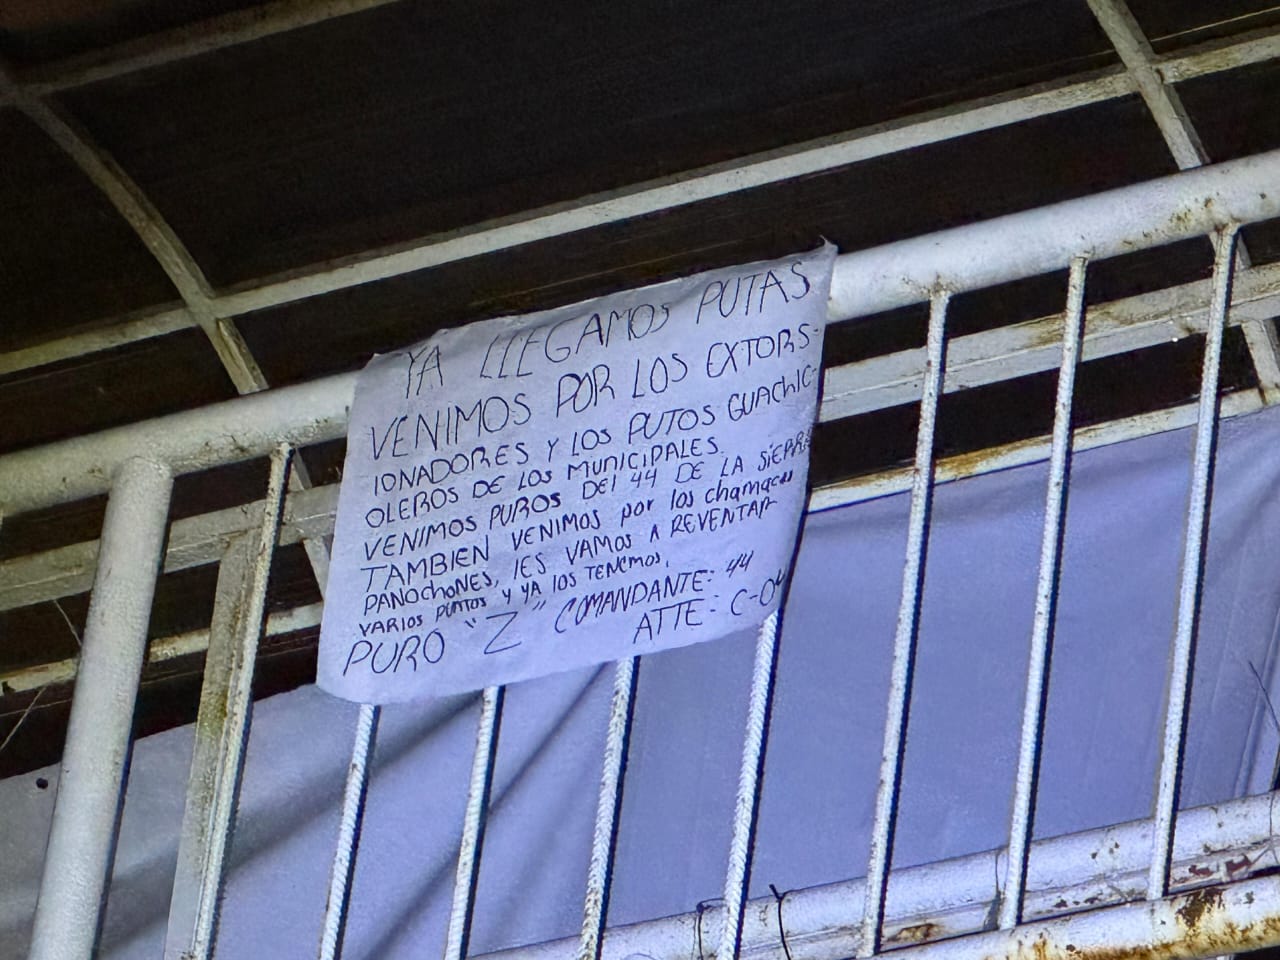 YA LLEGAMOS PUTAS
VENIMOS POR LOS EXTORS-
IONADORES Y LOS PUTOS GUACHIC-
OLEROS DE LOS MUNICIPALES.
VENIMOS PUROS DEl 44 DE LA SiERRA
TAMBIEN VENIMOS por los chamacos
PANOchoNES, lES VAMOS A REVENTAR
VARIOS PUNTOS Y YA lOS TENEMOS.
PURO "Z" COMANDANTE: 44
ATTE: C-04